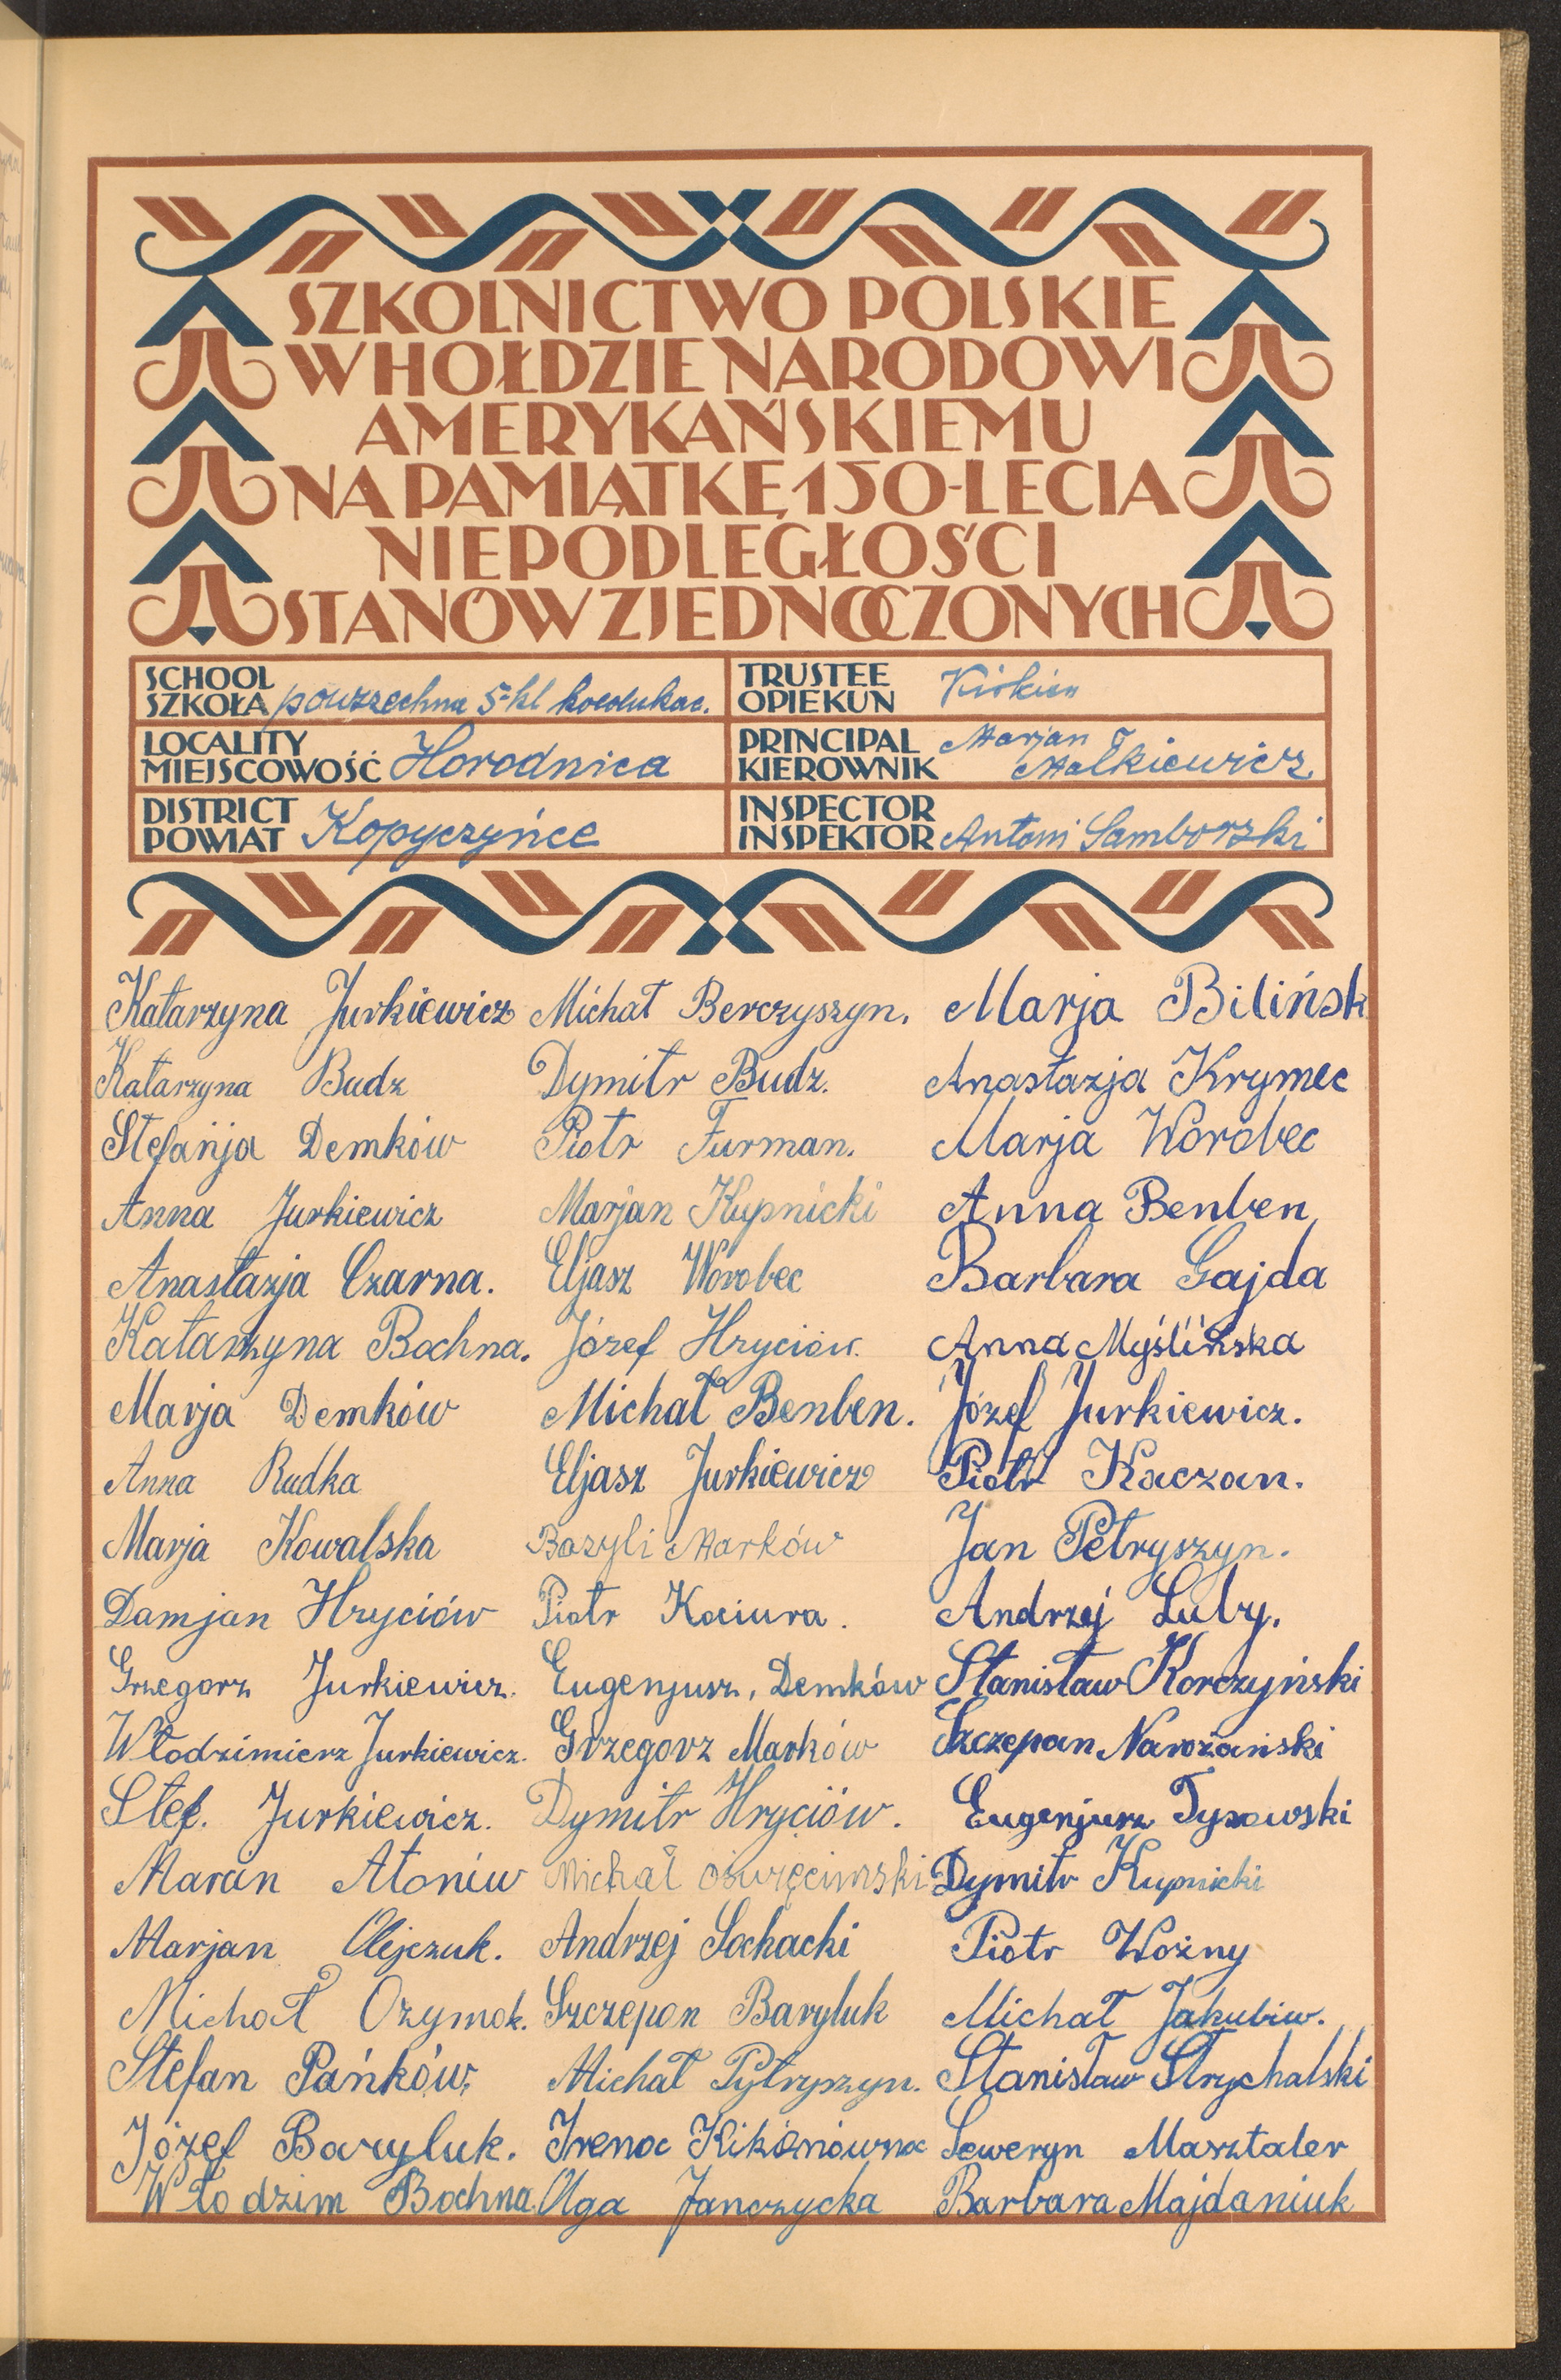 SZKOLNICTWO POLSKIE
W HOŁDZIE NARODOWI
AMERYKAŃSKIEMU
NA PAMIĄTKĘ 150-LECIA
NIEPODLEGŁOŚCI
STANÓW ZJEDNOCZONYCH
SCHOOL
SZKOŁA powszechna 5-kl koedukac.
TRUSTEE
OPIEKUN
LOCALITY
MIEJSCOWOŚĆ Horodnica
PRINCIPAL Marjan
KIEROWNIK Malkiewicz
DISTRICT
POWIAT Kopyczyńce
INSPECTOR
INSPEKTOR Antoni Samborski
Katarzyna Jurkiewicz Michał Berczyszyn. Marja Bilińsk
Katarzyna Budz Dymitr Budz. Anastazja Krymec
Stefanja Demków Piotr Furman. Marja Worobec
Anna Jurkiewicz Marjan Kupnicki Anna Benben
Anastazja Czarna. Eljasz Worobec Barbara Gajda
Katarzyna Bochna. Józef Hryciów. Anna Myślińska
Marja Demków Michał Benben. Józef Jurkiewicz.
Anna Rudka Eljasz Jurkiewicz Piotr Kaczan.
Marja Kowalska Bazyli Marków Jan Petryszyn.
Damjan Hryciów Piotr Kociura. Andrzej Luby.
Grzegorz Jurkiewicz. Eugenjusz, Demków Stanisław Korczyński
Włodzimierz Jurkiewicz. Grzegorz Marków Szczepan Narożański
Stef. Jurkiewicz. Dymitr Hryciów. Eugenjusz Tysowski
Marcin Atoniw Michał Oświęcimski Dymitr Kupnicki
Marjan Olejczuk. Andrzej Sochacki Piotr Woźny
Michał Ozymok. Szczepan Baryluk Michał Jakubiw.
Stefan Pańków, Michał Pytryszyn. Stanisław Strychalski
Józef Baryluk. Irena Kikónówna Seweryn Masztaler
Włodzim Bochna Olga Janczycka Barbara Majdaniuk